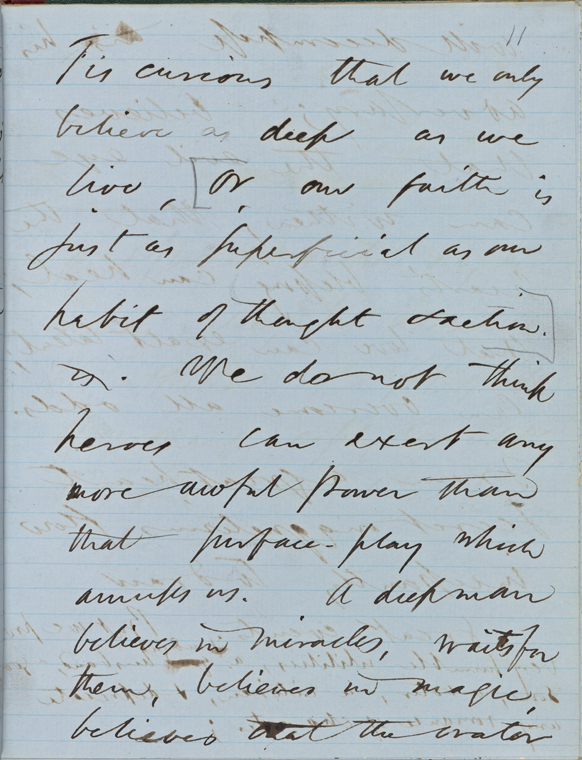 11
Tis curious that we only
believe as deep as we
live, [Or, our faith is
just as superficial as our
habit of thought & action.]
is. We do not think
heroes can exert any
more awful power than
that surface-play which
amuses us. A deep man
believes in miracles, waits for
them, believes in magic,
believes that the orator